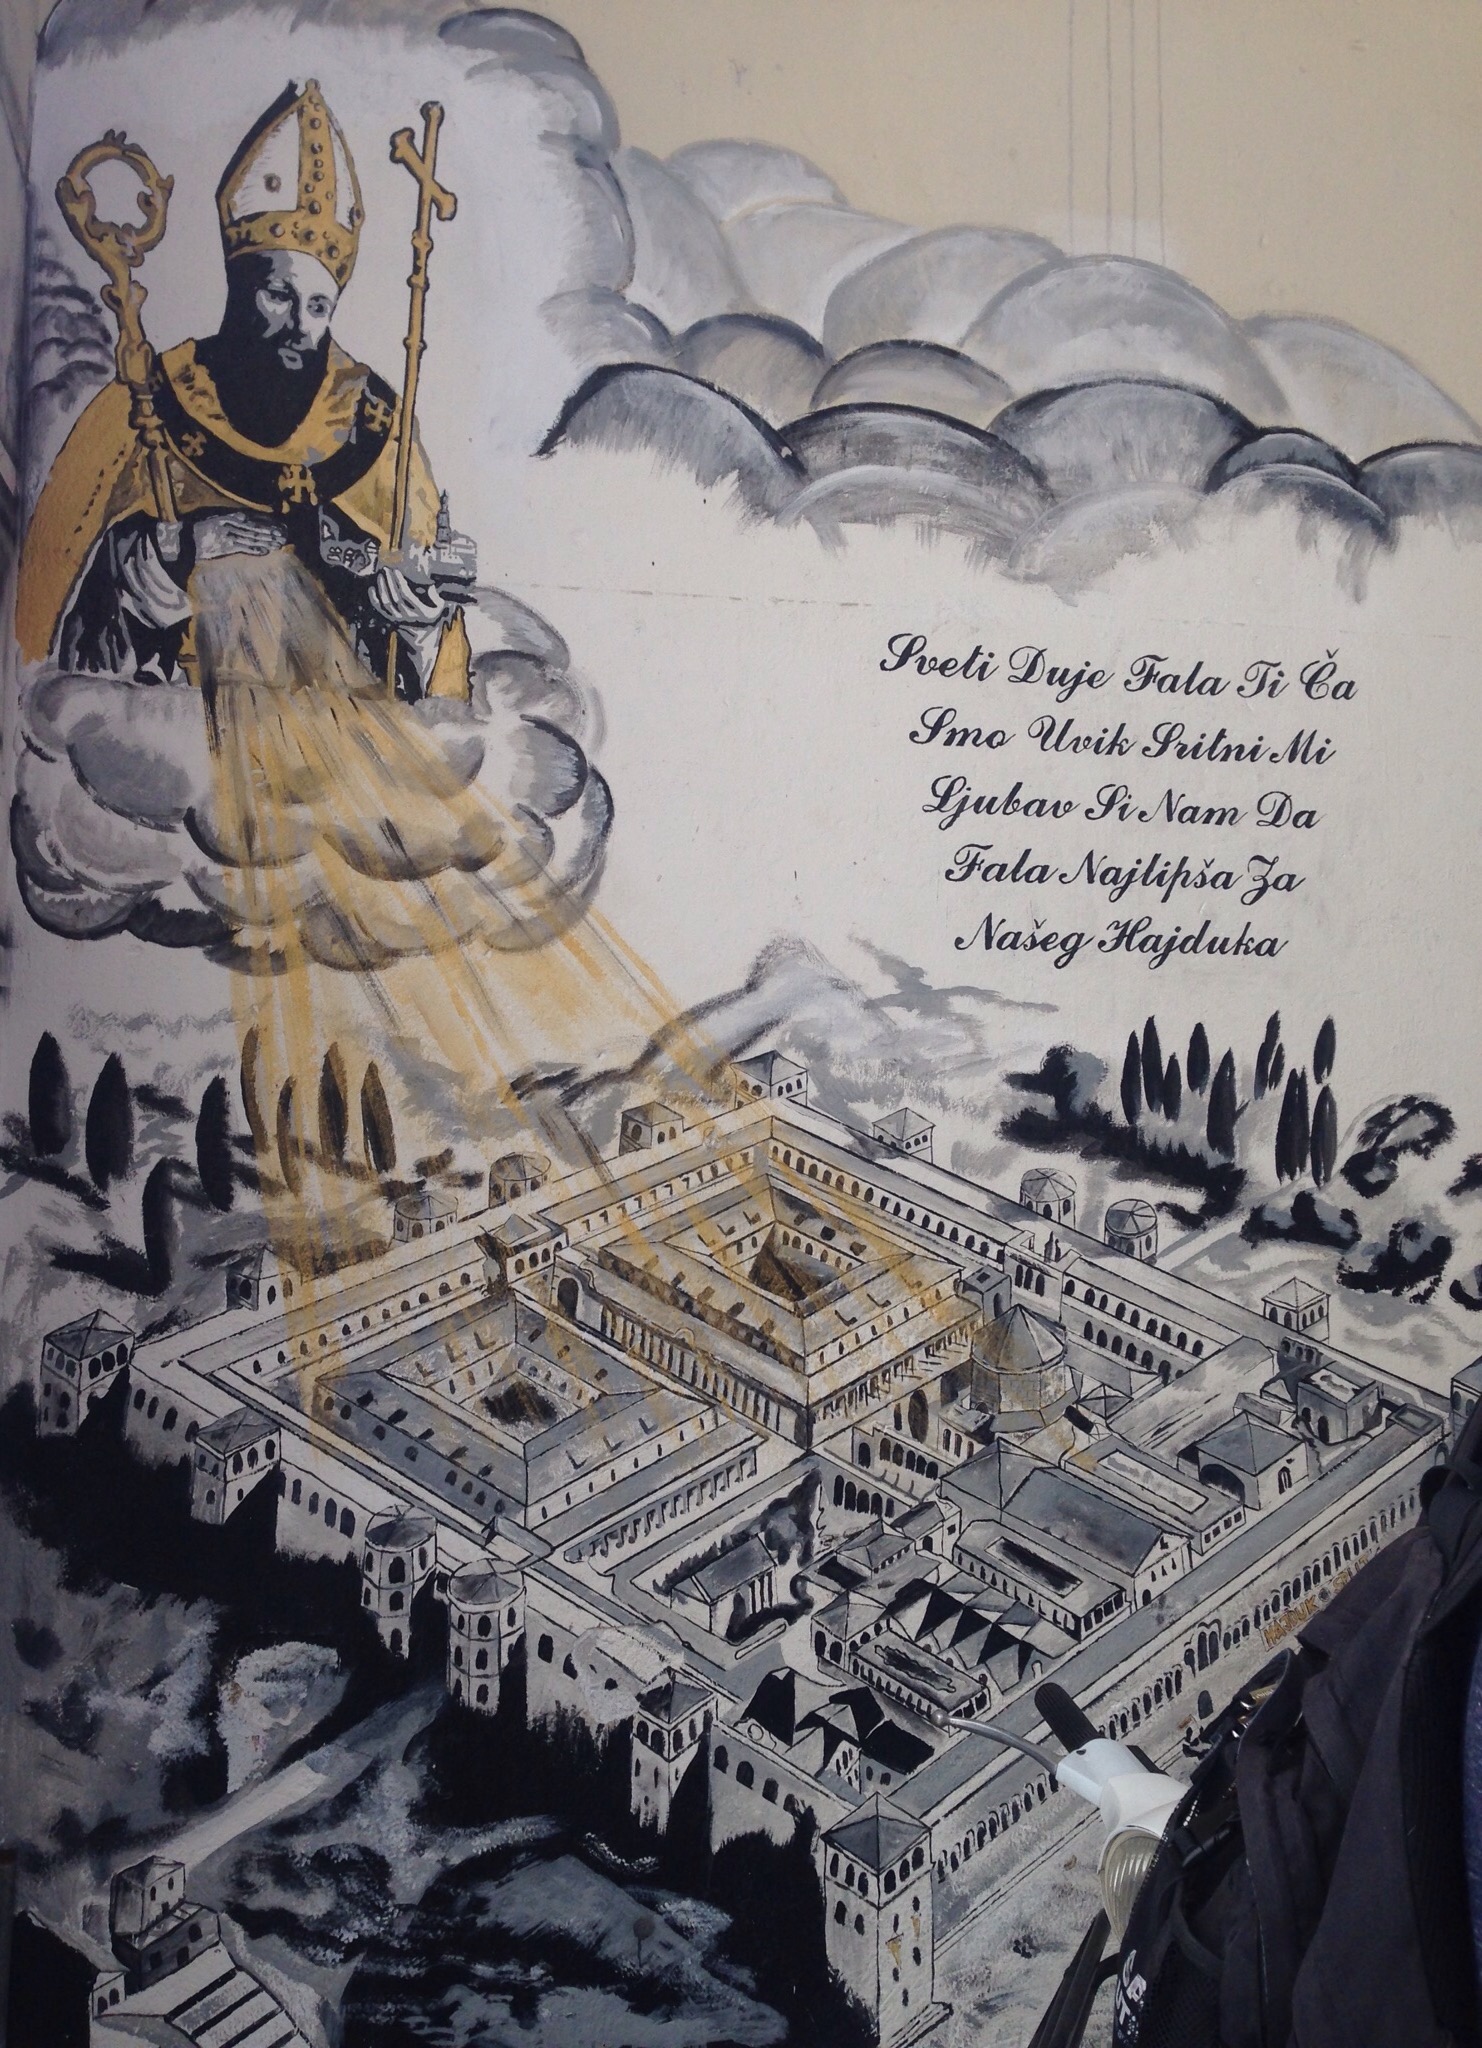 Sveti Duje Fala Ti Ča
Smo Uvik Sritni Mi
Ljubav Si Nam Da
Fala Najlipša Za
Našeg Hajduka
HAJDUK